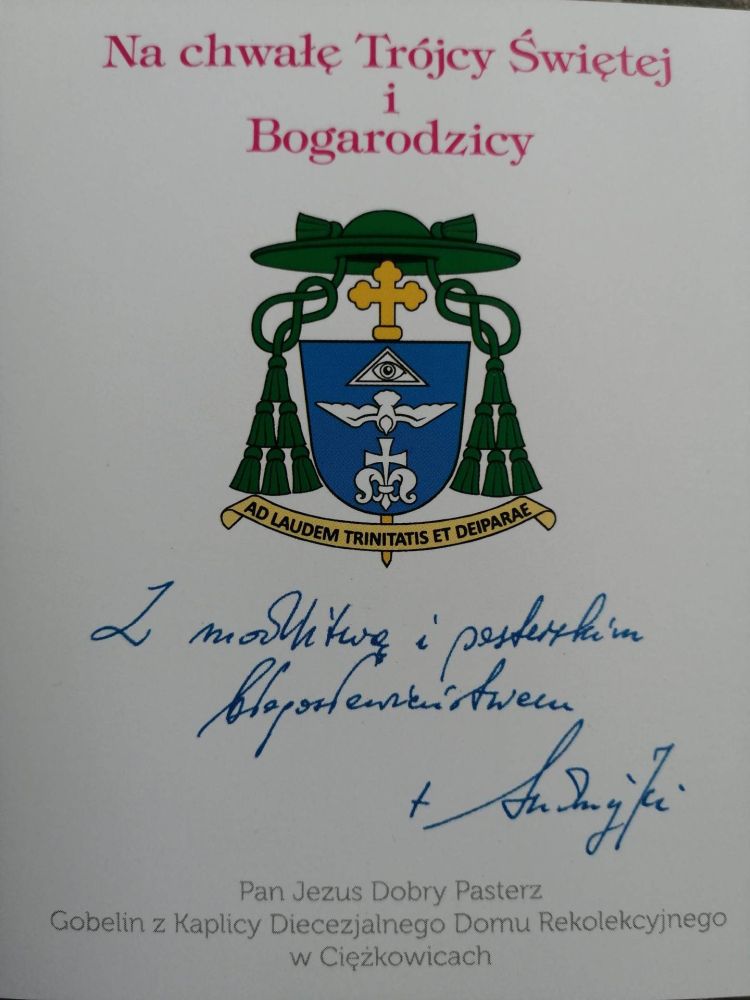 Na chwałę Trójcy Świętej
i
Bogarodzicy
AD LAUDEM TRINITATIS ET DEIPARAE
Z modlitwą i pasterskim
błogosławieństwem
+ Andrzej Jeż
Pan Jezus Dobry Pasterz
Gobelin z Kaplicy Diecezjalnego Domu Rekolekcyjnego
w Ciężkowicach